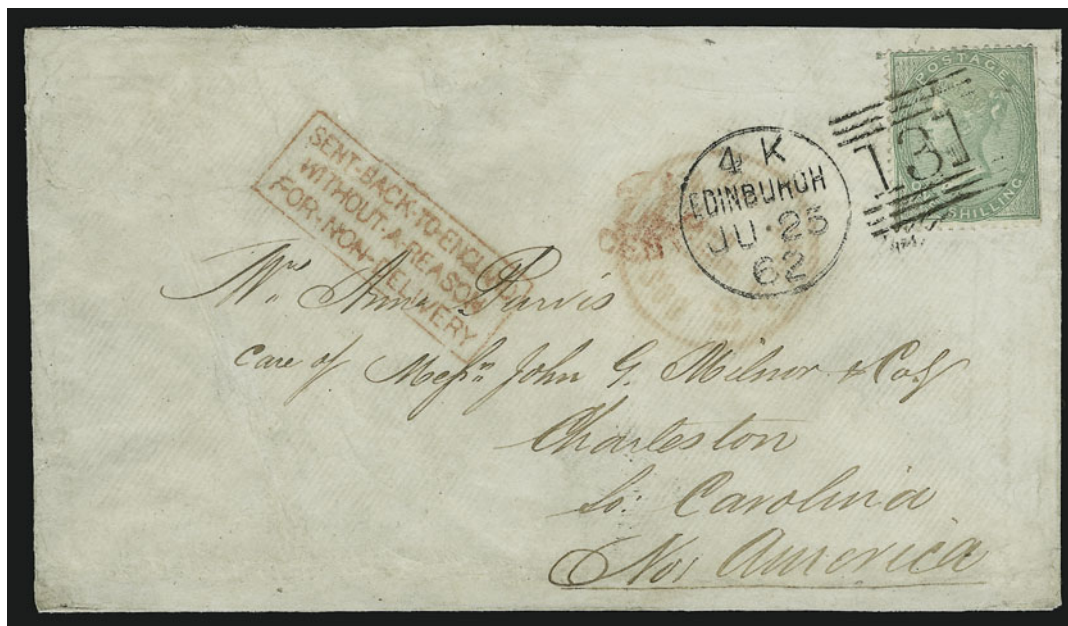 POSTAGE
ONE SHILLING
131
4 K
EDINBURGH
JU · 25
62
CENTS
SENT-BACK-TO-ENGLAND
WITHOUT-A-REASON
FOR-NON-DELIVERY
Mrs Anne Purvis
care of Messrs John G. Milnor & Coy
Charleston
So: Carolina
Nor America